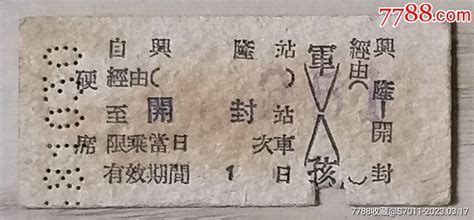 7788.com
自興隆站
硬經由(
至開封站
席限乘當日 次車
有效期間 1 日
軍
孩
興
經由(
隆—開
封
7788收藏@S7011-2023.03.17